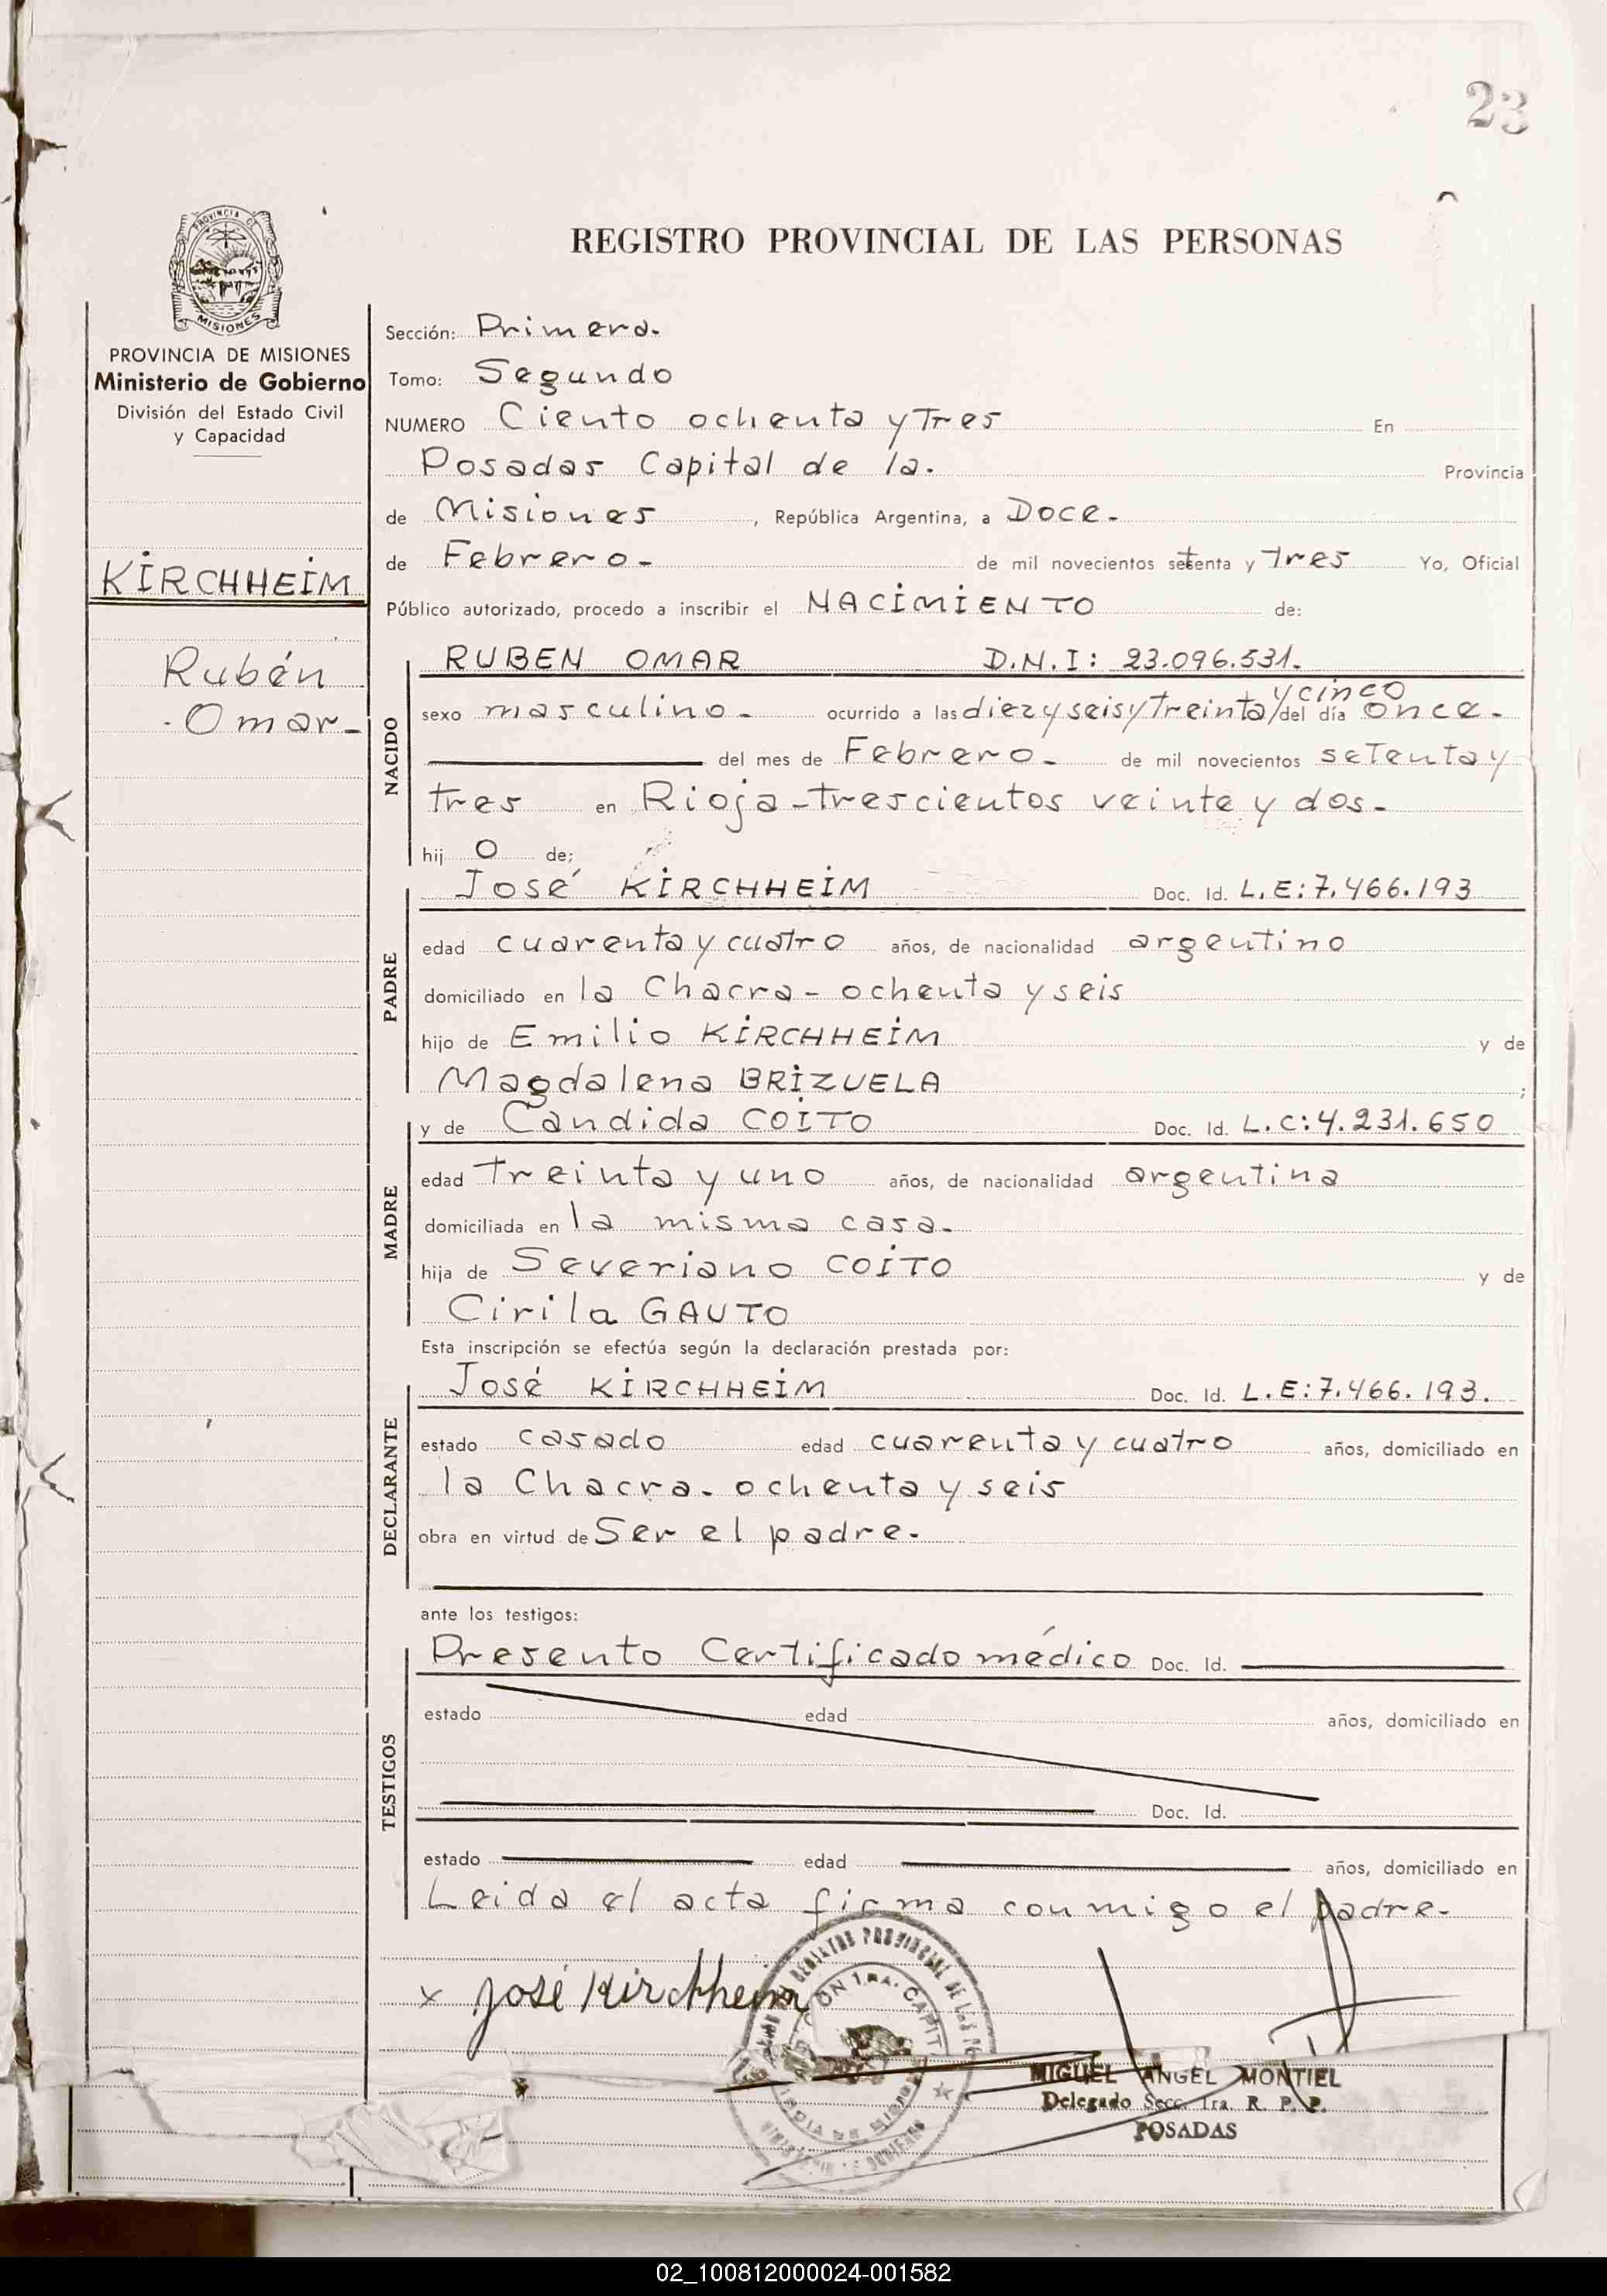 23
REGISTRO PROVINCIAL DE LAS PERSONAS
PROVINCIA DE
MISIONES
PROVINCIA DE MISIONES
Ministerio de Gobierno
División del Estado Civil
y Capacidad
KIRCHHEIM
Rubén
Omar
Sección: Primera.
Tomo: Segundo
NUMERO Ciento ochenta y Tres En
Posadas Capital de la. Provincia
de Misiones, República Argentina, a Doce.
de Febrero. de mil novecientos setenta y Tres Yo, Oficial
Público autorizado, procedo a inscribir el NACIMIENTO de:
NACIDO
RUBEN OMAR D.N.I: 23.096.531.
y cinco
sexo masculino. ocurrido a las diez y seis y Treinta/del día once.
del mes de Febrero. de mil novecientos setenta y
tres en Rioja-trescientos veinte y dos-
hij o de;
PADRE
José KIRCHHEIM Doc. Id. L.E:7.466.193
edad cuarenta y cuatro años, de nacionalidad argentino
domiciliado en la Chacra- ochenta y seis
hijo de Emilio KIRCHHEIM y de
Magdalena BRIZUELA ;
MADRE
y de Candida COITO Doc. Id. L.C:4.231.650
edad Treinta y uno años, de nacionalidad argentina
domiciliada en la misma casa.
hija de Severiano COITO y de
Cirila GAUTO
Esta inscripción se efectúa según la declaración prestada por:
DECLARANTE
José KIRCHHEIM Doc. Id. L.E:7.466.193.
estado casado edad cuarenta y cuatro años, domiciliado en
la Chacra. ochenta y seis
obra en virtud de Ser el padre.
ante los testigos:
TESTIGOS
Presento Certificado médico Doc. Id.
estado edad años, domiciliado en
Doc. Id.
estado edad años, domiciliado en
Leida el acta firma conmigo el padre.
x José Kirchheim
MIGUEL ANGEL MONTIEL
Delegado Secc. 1ra. R. P. P.
POSADAS
02_100812000024-001582